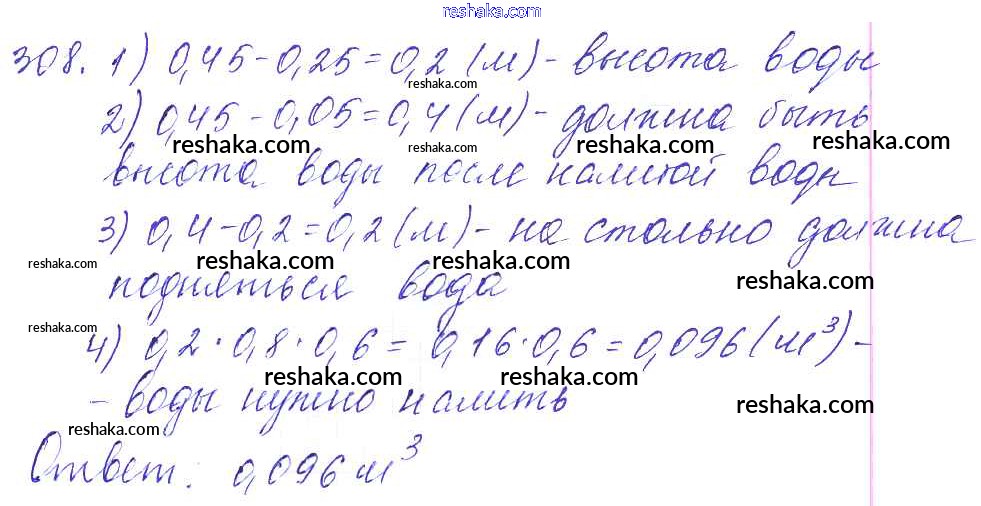 reshaka.com
308. 1) 0,45-0,25=0,2 (м) - высота воды
reshaka.com
2) 0,45-0,05=0,4 (м) - должна быть
reshaka.com reshaka.com reshaka.com
высота воды после налитой воды
3) 0,4-0,2=0,2 (м) - на столько должна
reshaka.com reshaka.com reshaka.com
подняться вода reshaka.com
reshaka.com
4) 0,2·0,8·0,6= 0,16·0,6=0,096 (м³) -
reshaka.com reshaka.com
- воды нужно налить reshaka.com
reshaka.com
Ответ: 0,096 м³